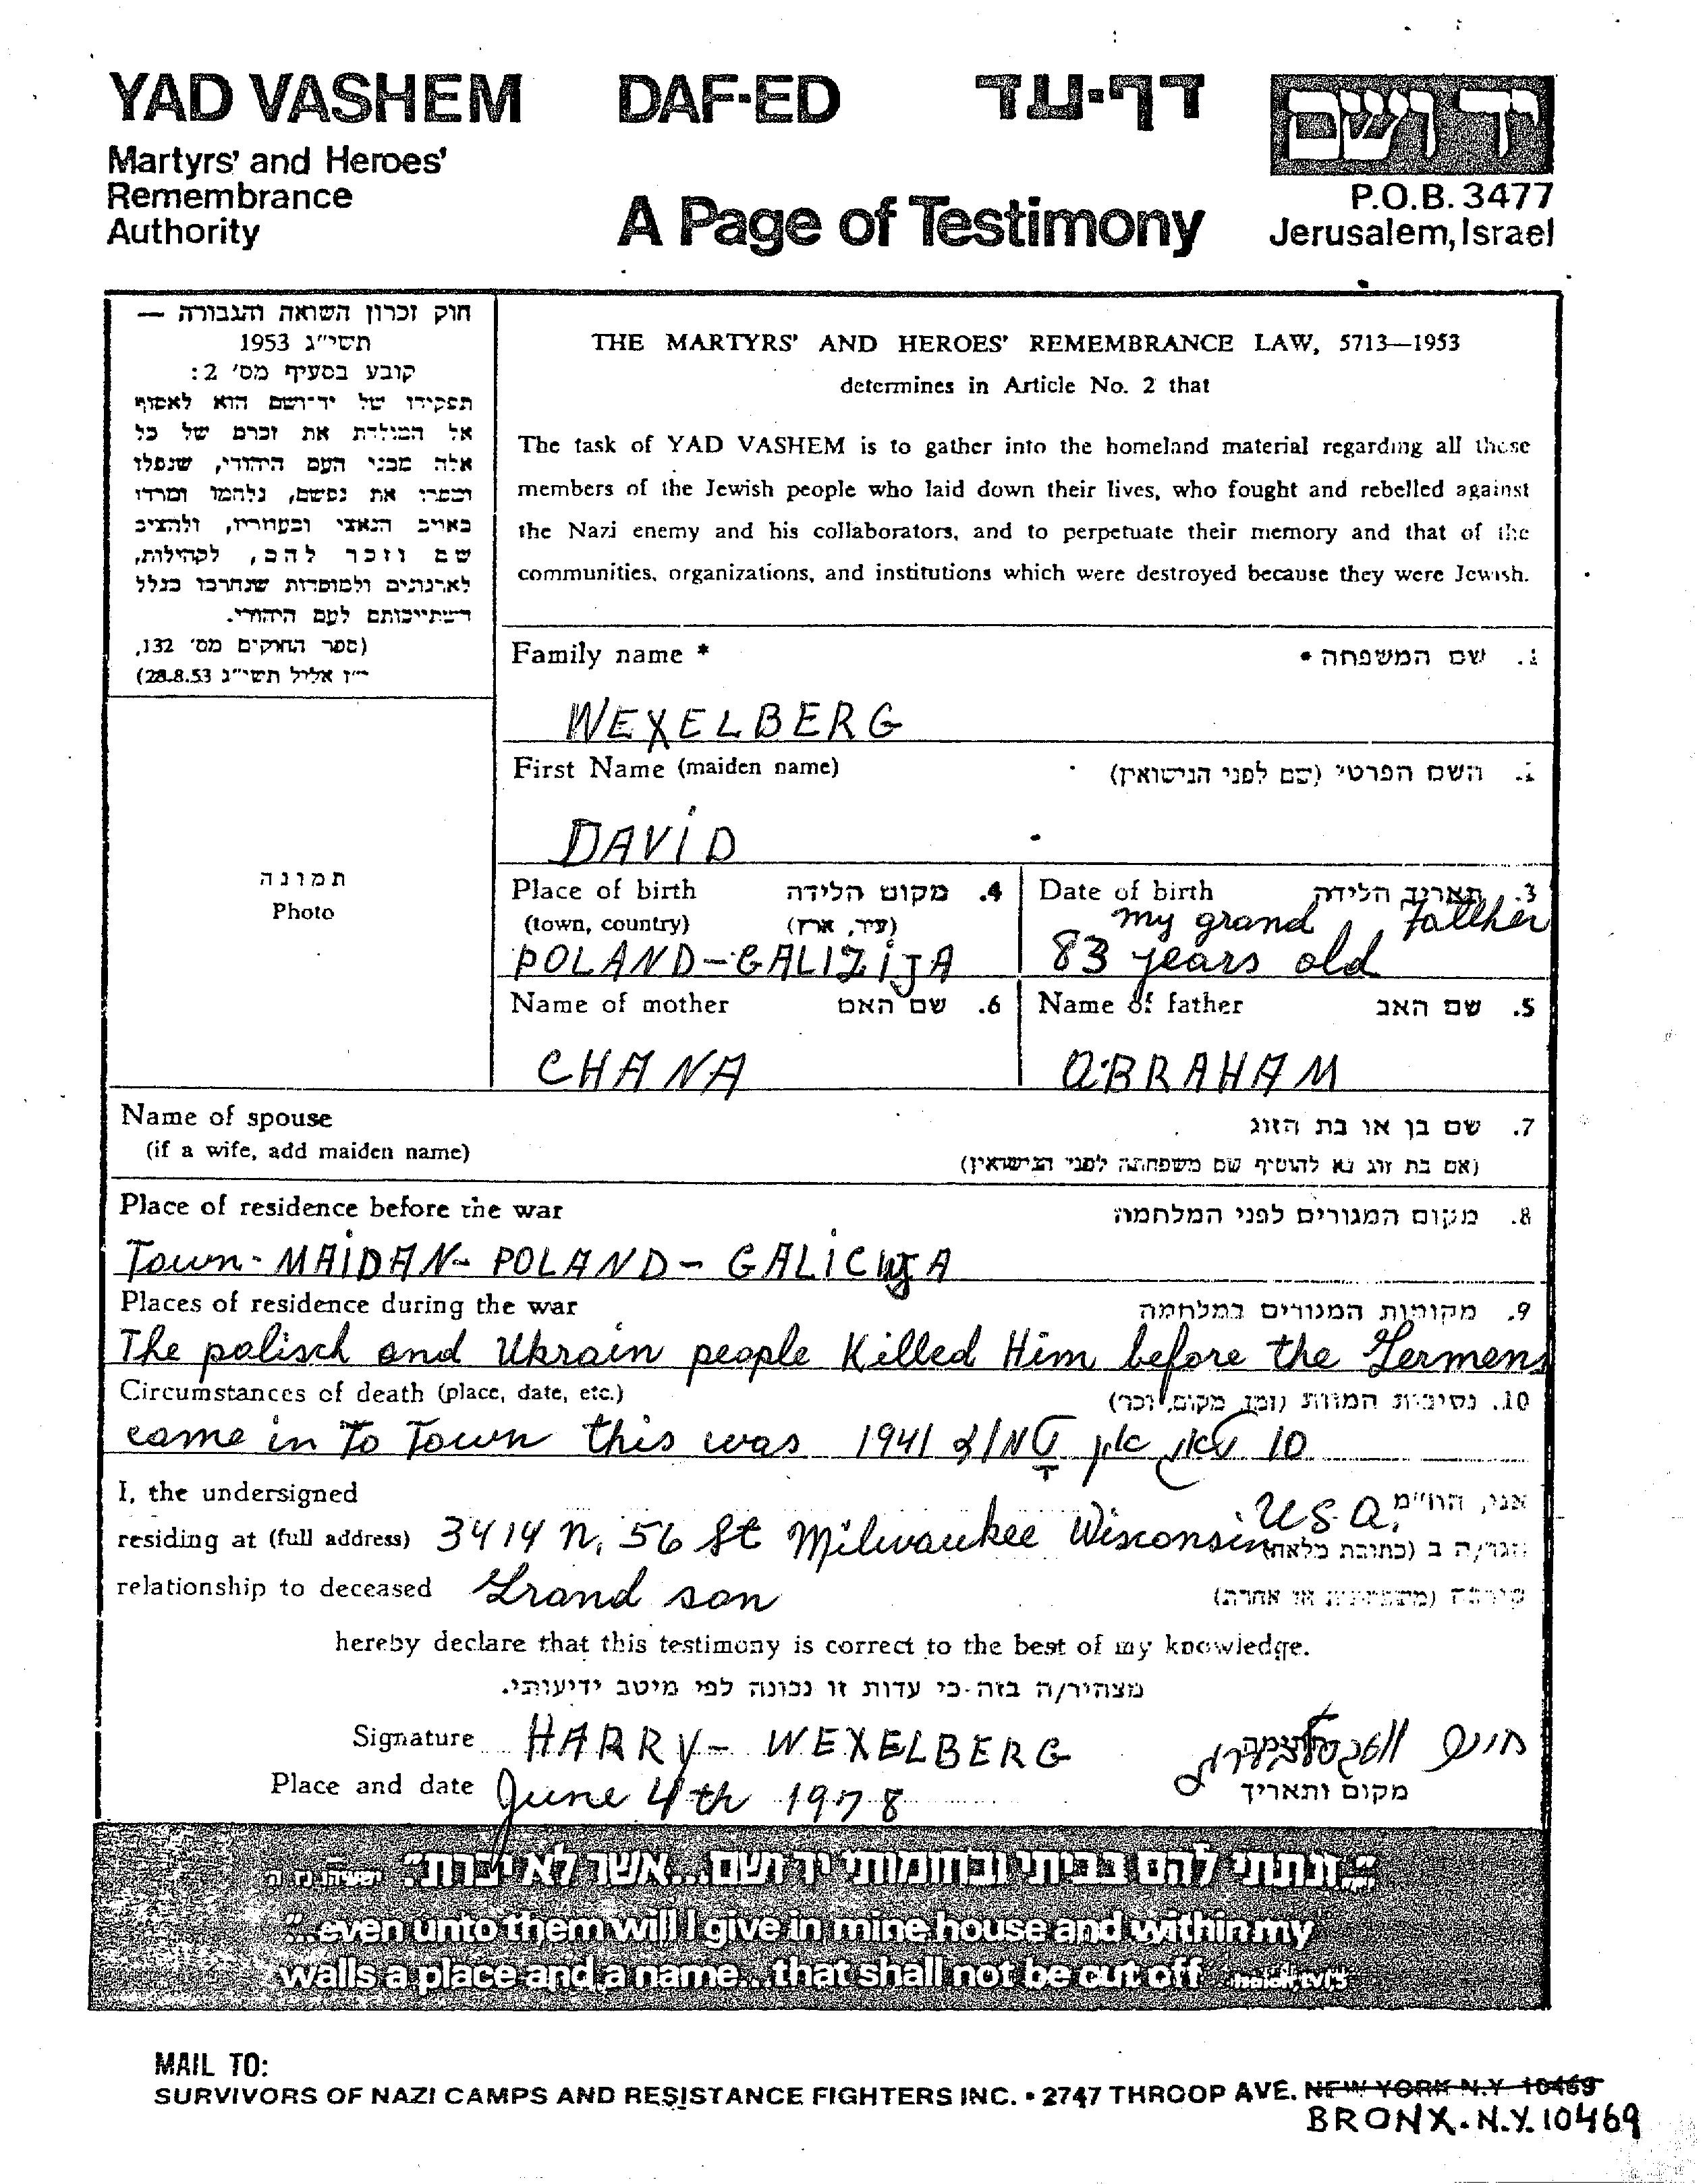 YAD VASHEM DAF-ED דף-עד יד ושם
Martyrs' and Heroes'
Remembrance
Authority
A Page of Testimony
P.O.B. 3477
Jerusalem, Israel
חוק זכרון השואה והגבורה —
תשי"ג 1953
קובע בסעיף מס' 2:
תפקידו של יד-ושם הוא לאסוף
אל המולדת את זכרם של כל
אלה מבני העם היהודי, שנפלו
ומסרו את נפשם, נלחמו ומרדו
באויב הנאצי ובעוזריו, ולהציב
שם וזכר להם, לקהילות,
לארגונים ולמוסדות שנחרבו בגלל
השתייכותם לעם היהודי.
(ספר החוקים מס' 132,
י"ז אלול תשי"ג 28.8.53)
THE MARTYRS' AND HEROES' REMEMBRANCE LAW, 5713—1953
determines in Article No. 2 that
The task of YAD VASHEM is to gather into the homeland material regarding all those
members of the Jewish people who laid down their lives, who fought and rebelled against
the Nazi enemy and his collaborators, and to perpetuate their memory and that of the
communities, organizations, and institutions which were destroyed because they were Jewish.
Family name * 1. שם המשפחה *
WEXELBERG
First Name (maiden name) 2. השם הפרטי (שם לפני הנישואין)
DAVID
תמונה
Photo
Place of birth 4. מקום הלידה
(town, country) (עיר, ארץ)
POLAND-GALIZIJA
Date of birth 3. תאריך הלידה
my grand Fatther
83 years old
Name of mother 6. שם האם
CHANA
Name of father 5. שם האב
ABRAHAM
Name of spouse 7. שם בן או בת הזוג
(if a wife, add maiden name) (אם בת זוג נא להוסיף שם משפחתה לפני הנישואין)
Place of residence before the war 8. מקום המגורים לפני המלחמה
Town-MAIDAN-POLAND-GALICIJA
Places of residence during the war 9. מקומות המגורים במלחמה
The polisch and Ukrain people Killed Him before the Germens
Circumstances of death (place, date, etc.) 10. נסיבות המוות (זמן, מקום, וכו')
came in To Town this was 1941 10
I, the undersigned אני, הח"מ
residing at (full address) 3414 N. 56 St Milwaukee Wisconsin U.S.A. הגר/ה ב (כתובת מלאה)
relationship to deceased Grand son קירבה (משפחתית או אחרת)
hereby declare that this testimony is correct to the best of my knowledge.
מצהיר/ה בזה-כי עדות זו נכונה לפי מיטב ידיעותי.
Signature HARRY-WEXELBERG
Place and date June 4th 1978 מקום ותאריך
"...ונתתי להם בביתי ובחומותי יד ושם...אשר לא יכרת." ישעיהו נו ה
"...even unto them will I give in mine house and within my
walls a place and a name...that shall not be cut off
MAIL TO:
SURVIVORS OF NAZI CAMPS AND RESISTANCE FIGHTERS INC. • 2747 THROOP AVE. NEW YORK N.Y. 10469
BRONX. N.Y. 10469